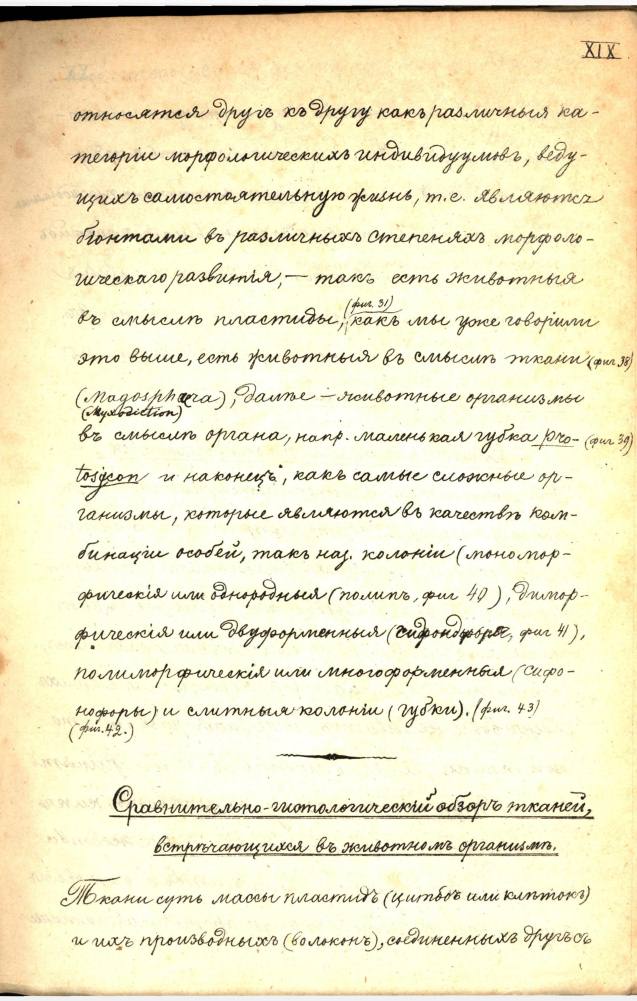 XIX
относятся другъ къ другу какъ различныя ка-
тегоріи морфологическихъ индивидуумовъ, веду-
щихъ самостоятельную жизнь, т.е. являются
біонтами въ различныхъ степеняхъ морфоло-
гическаго развитія, — такъ есть животныя
(фиг. 31)
въ смыслѣ пластиды, какъ мы уже говорили
это выше, есть животныя въ смыслѣ ткани (фиг 38)
(Magosphæra), далѣе — животные организмы
въ смыслѣ органа, напр. маленькая губка pro- (фиг 39)
tosycon и наконецъ, какъ самые сложные ор-
ганизмы, которые являются въ качествѣ ком-
бинаціи особей, такъ наз. колоніи (мономор-
фическія или однородныя (полипъ, фиг 40), димор-
фическія или двуформенныя (фиг 41),
полиморфическія или многоформенныя (сифо-
нофоры) и слитныя колоніи (губки). (фиг. 43)
(фиг. 42.)
Сравнительно-гистологическій обзоръ тканей,
встрѣчающихся въ животномъ организмѣ.
Ткани суть массы пластидъ (цитодъ или клѣтокъ)
и ихъ производныхъ (волоконъ), соединенныхъ другъ съ